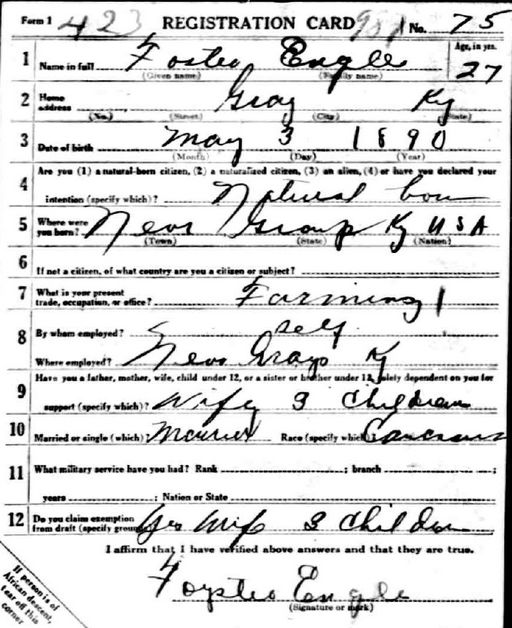 Form 1 423 REGISTRATION CARD No. 75
1 Name in full Foster Engle Age, in yrs. 27
(Given name) (Family name)
2 Home address Gray Ky
(No.) (Street) (City) (State)
3 Date of birth May 3 1890
(Month) (Day) (Year)
4 Are you (1) a natural-born citizen, (2) a naturalized citizen, (3) an alien, (4) or have you declared your
intention (specify which)? Natural born
5 Where were you born? Near Grays Ky U S A
(Town) (State) (Nation)
6 If not a citizen, of what country are you a citizen or subject?
7 What is your present trade, occupation, or office? Farming
8 By whom employed? Self
Where employed? Near Grays Ky
9 Have you a father, mother, wife, child under 12, or a sister or brother under 12, solely dependent on you for
support (specify which)? Wife 3 children
10 Married or single (which) Married Race (specify which) Caucasian
11 What military service have you had? Rank ; branch ;
years ; Nation or State
12 Do you claim exemption from draft (specify grounds) Yes Wife 3 Children
I affirm that I have verified above answers and that they are true.
Foyster Engle
(Signature or mark)
If person is of
African descent,
tear off this
corner